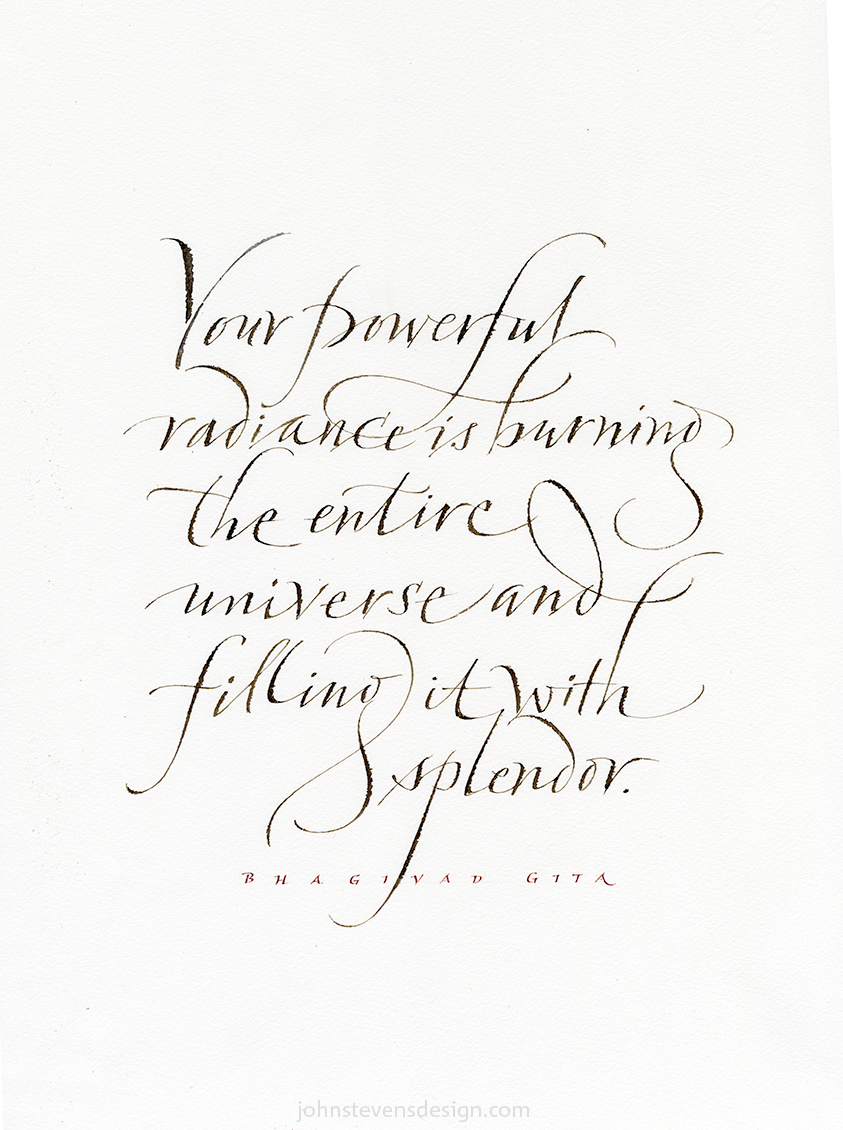 Your powerful
radiance is burning
the entire
universe and
filling it with
splendor.
BHAGIVAD GITA
johnstevensdesign.com